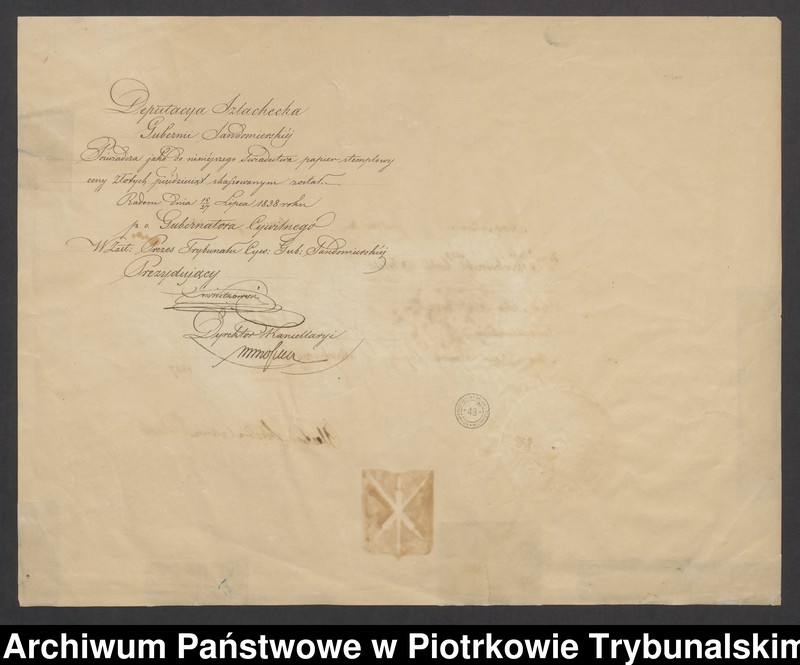 Deputacya Szlachecka
Gubernii Sandomierskiéj
Poświadcza jako do ninieyszego Świadectwa papier stemplowy
ceny Złotych pięćdziesiąt skassowanym został.
Radom dnia 15/27 Lipca 1838 roku
p. o. Gubernatora Cywilnego
W Zast: Prezes Trybunału Cyw: Gub: Sandomierskiéj
Prezydujący
Dyrektor Kancellaryi
43
Archiwum Państwowe w Piotrkowie Trybunalskim